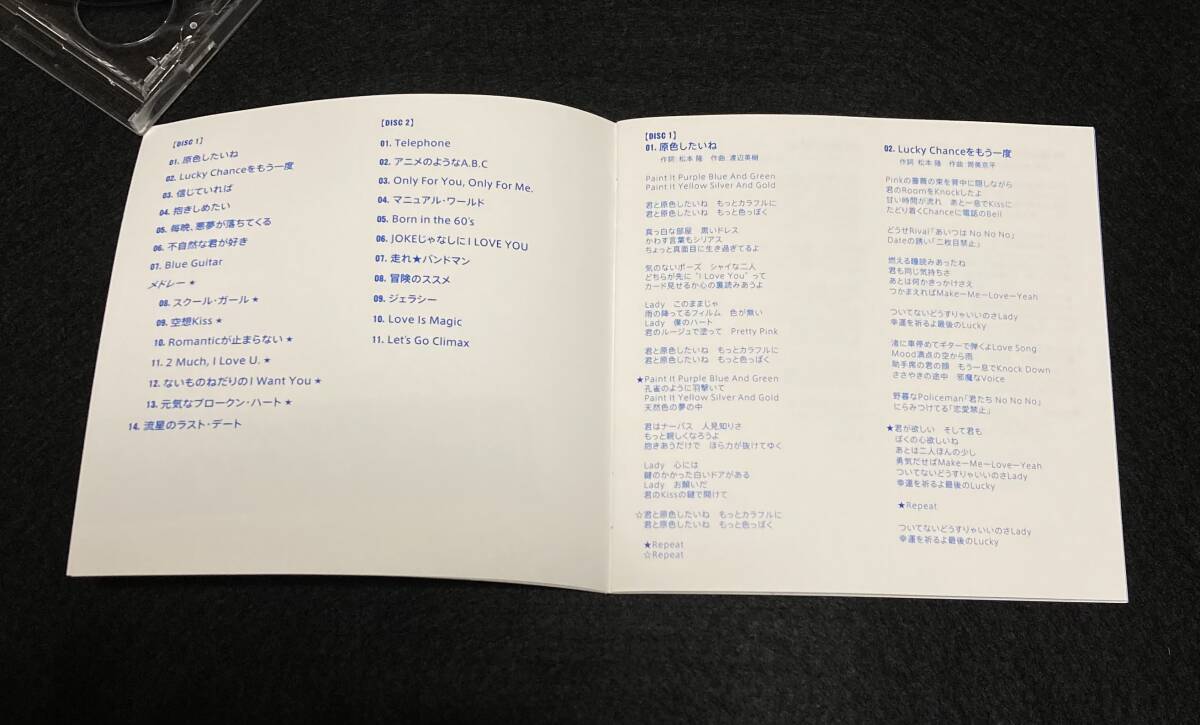 【DISC 1】
01. 原色したいね
02. Lucky Chanceをもう一度
03. 信じていれば
04. 抱きしめたい
05. 毎晩、悪夢が落ちてくる
06. 不自然な君が好き
07. Blue Guitar
メドレー ★
08. スクール・ガール ★
09. 空想Kiss ★
10. Romanticが止まらない ★
11. 2 Much, I Love U. ★
12. ないものねだりの I Want You ★
13. 元気なブロークン・ハート ★
14. 流星のラスト・デート
【DISC 2】
01. Telephone
02. アニメのようなA.B.C
03. Only For You, Only For Me.
04. マニュアル・ワールド
05. Born in the 60's
06. JOKEじゃなしに I LOVE YOU
07. 走れ★バンドマン
08. 冒険のススメ
09. ジェラシー
10. Love Is Magic
11. Let's Go Climax
【DISC 1】
01. 原色したいね
作詞 松本 隆 作曲 渡辺英樹
Paint It Purple Blue And Green
Paint It Yellow Silver And Gold
君と原色したいね もっとカラフルに
君と原色したいね もっと色っぽく
真っ白な部屋 黒いドレス
かわす言葉もシリアス
ちょっと真面目に生き過ぎてるよ
気のないポーズ シャイな二人
どちらが先に "I Love You" って
カード見せるか心の裏読みあうよ
Lady このままじゃ
雨の降ってるフィルム 色が無い
Lady 僕のハート
君のルージュで塗って Pretty Pink
君と原色したいね もっとカラフルに
君と原色したいね もっと色っぽく
★Paint It Purple Blue And Green
孔雀のように羽撃いて
Paint It Yellow Silver And Gold
天然色の夢の中
君はナーバス 人見知りさ
もっと親しくなろうよ
抱きあうだけで ほら力が抜けてゆく
Lady 心には
鍵のかかった白いドアがある
Lady お願いだ
君のKissの鍵で開けて
☆君と原色したいね もっとカラフルに
君と原色したいね もっと色っぽく
★Repeat
☆Repeat
02. Lucky Chanceをもう一度
作詞 松本 隆 作曲 筒美京平
Pinkの薔薇の束を背中に隠しながら
君のRoomをKnockしたよ
甘い時間が流れ あと一息でKissに
たどり着くChanceに電話のBell
どうせRival「あいつは No No No」
Dateの誘い「二枚目禁止」
燃える瞳読みあったね
君も同じ気持ちさ
あとは何かきっかけさえ
つかまえればMake－Me－Love－Yeah
ついてないどうすりゃいいのさLady
幸運を祈るよ最後のLucky
渚に車停めてギターで弾くよLove Song
Mood満点の空から雨
助手席の君の顔 もう一息でKnock Down
ささやきの途中 邪魔なVoice
野暮なPoliceman「君たち No No No」
にらみつけてる「恋愛禁止」
★君が欲しい そして君も
ぼくの心欲しいね
あとは二人ほんの少し
勇気だせばMake－Me－Love－Yeah
ついてないどうすりゃいいのさLady
幸運を祈るよ最後のLucky
★Repeat
ついてないどうすりゃいいのさLady
幸運を祈るよ最後のLucky